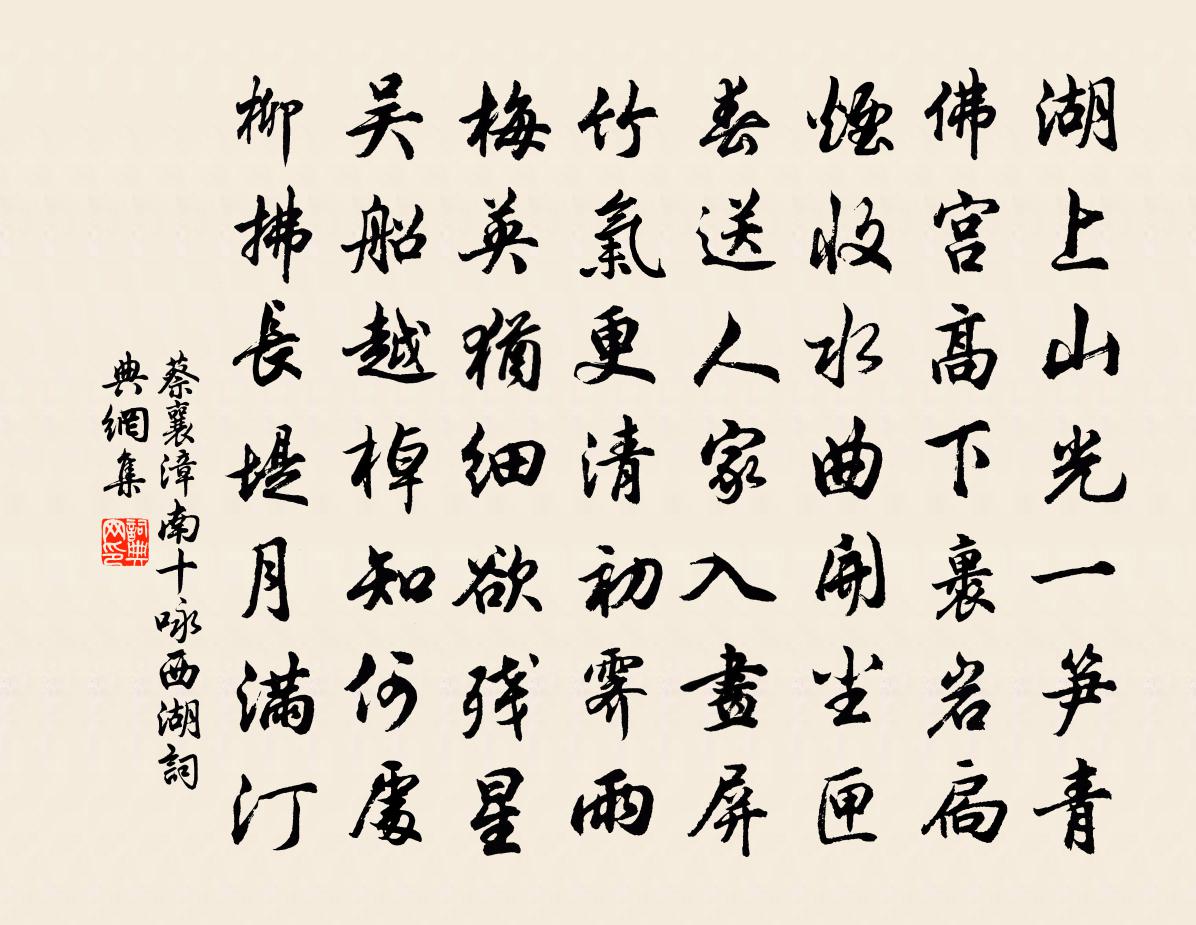 湖上山光一笋青
佛宫高下裹岩扃
煙收水曲開尘匣
春送人家入畫屏
竹氣更清初霁雨
梅英猶细欲残星
吴船越棹知何處
柳拂長堤月满汀
蔡襄漳南十咏西湖詞
典網集
詞典
网印